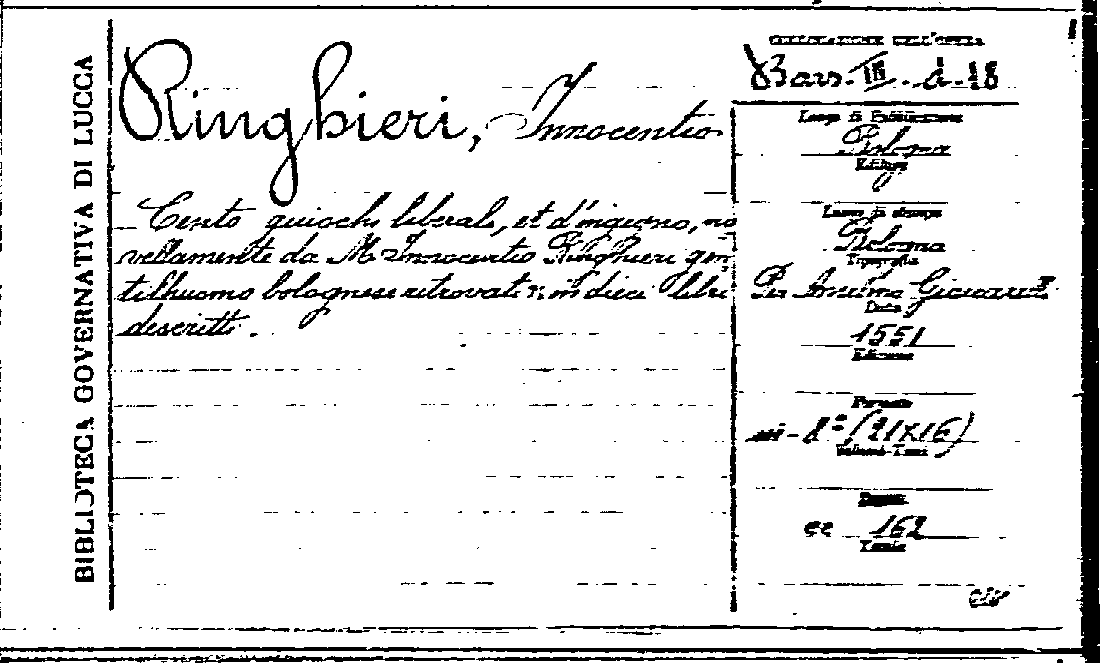 BIBLIOTECA GOVERNATIVA DI LUCCA
Ringhieri, Innocentio
Cento giuochi liberali, et d'ingegno, no
vellamente da M. Innocentio Ringhieri gen
tilhuomo bolognese ritrovati, in dieci libri
descritti.
Bars. III. d. 18
Luogo di Pubblicazione
Bologna
Luogo di stampa
Bologna
Tipografia
Per Anselmo Giaccarelli
Data
1551
Edizione
Formato
in-8° (21x16)
Volumi-Tomi
Pagine
cc 162
Tavole